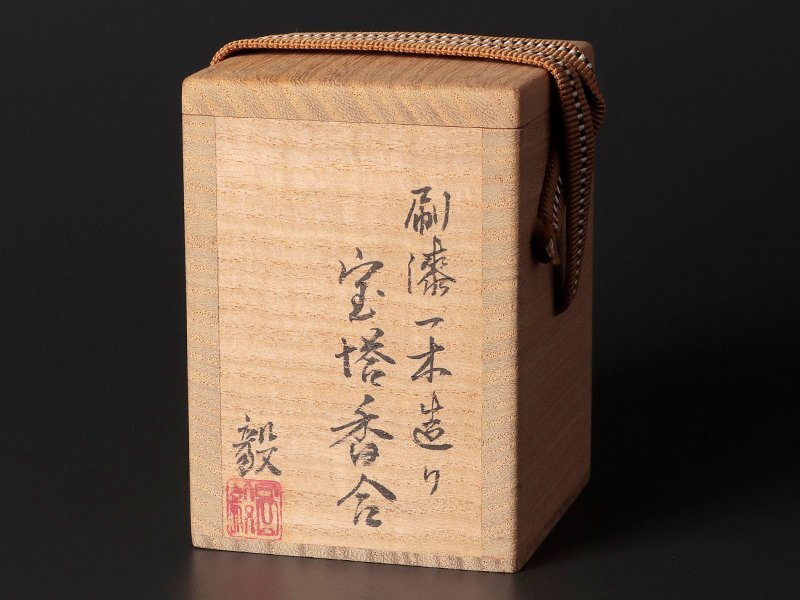 刷漆一木造り
宝塔香合
毅